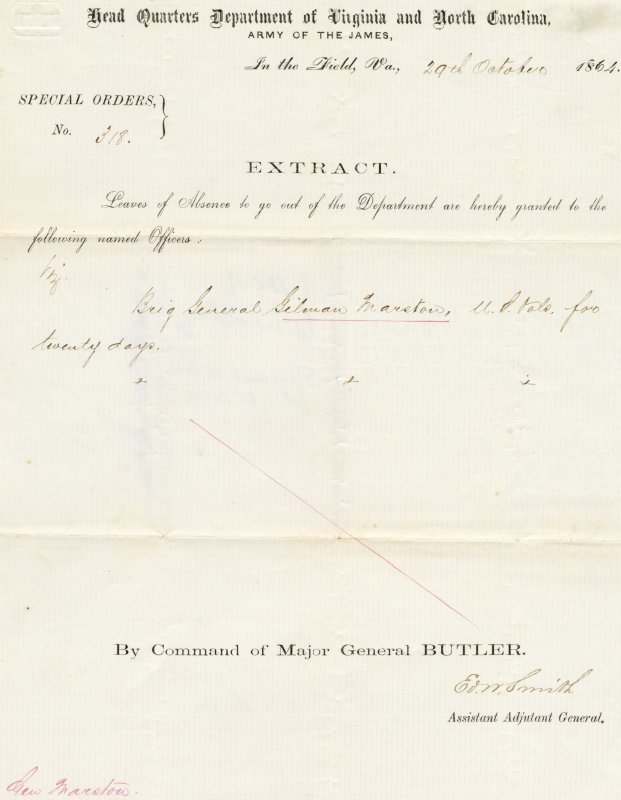 Head Quarters Department of Virginia and North Carolina,
ARMY OF THE JAMES,
In the Field, Va., 29th October 1864.
SPECIAL ORDERS,
No. 318.
EXTRACT.
Leaves of Absence to go out of the Department are hereby granted to the
following named Officers:
Viz.
Brig General Gilman Marston, U.S. Vols. for
twenty days.
+ + +
By Command of Major General BUTLER.
Ed. W. Smith
Assistant Adjutant General.
Gen Marston.